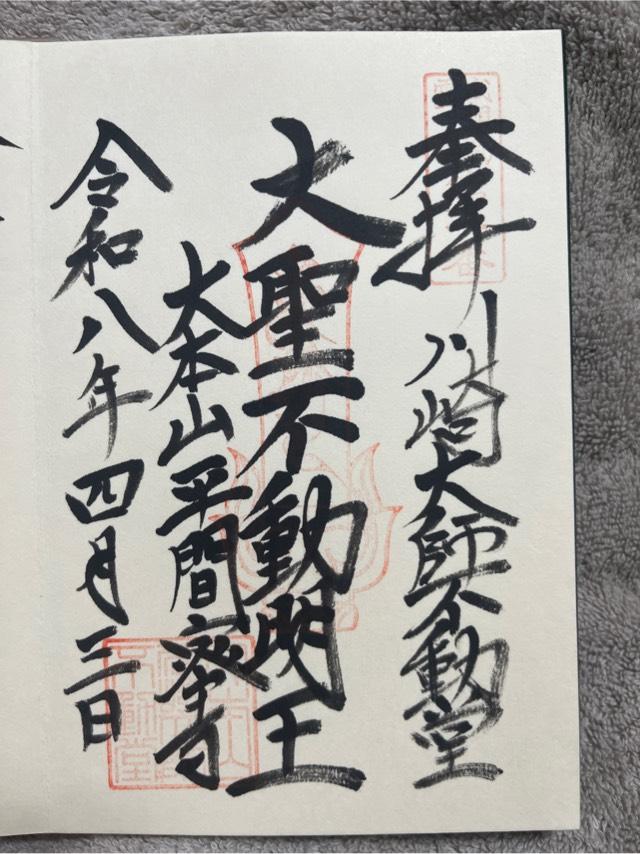 奉拝
川崎大師不動堂
大聖不動明王
大本山平間寺
令和八年四月三日
不動堂